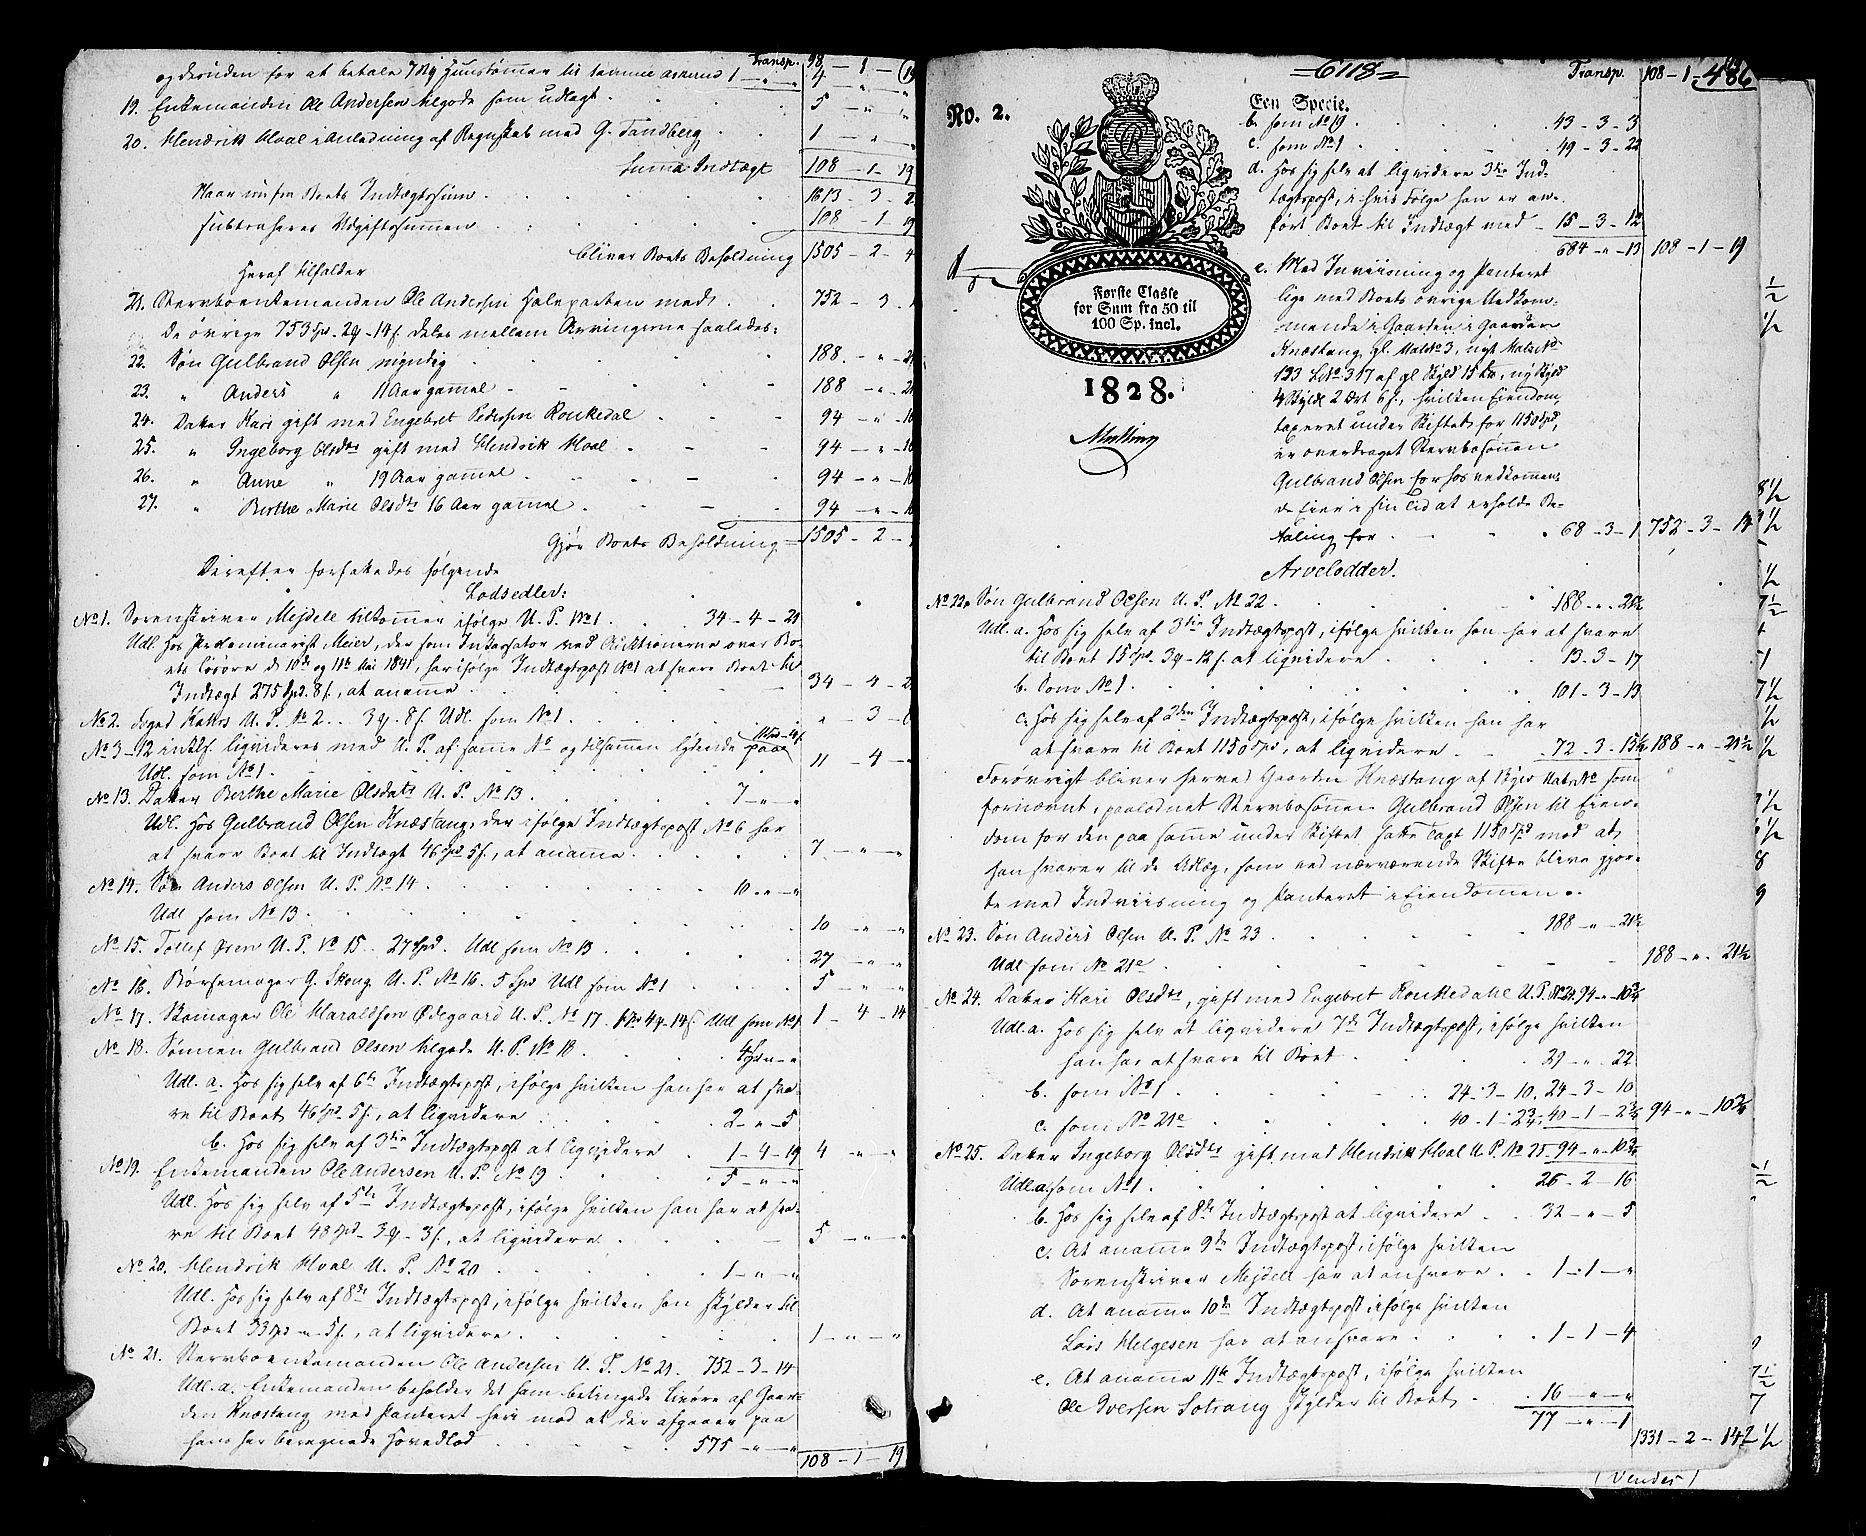 Transp. 98 - 1 - 19
og desuden for at betale 7 Rg Huustømmer til samme Askerud 1 - " - " 4 - " - "
19. Enkemanden Ole Andersen tilgode som udlagt 5 - " - "
20. Hendrik Hval i Anledning af Regnskab med G. Tandberg 1 - " - "
Summa Indtægt 108 - 1 - 19
Naar nu fra Boets Indtægtssum 1613 - 3 - 2
subtraheres Udgiftssummen 108 - 1 - 19
bliver Boets Beholdning 1505 - 2 - 4
Heraf tilfalder
21. Stervboenkemanden Ole Andersen Halvparten med 752 - 3 -
De øvrige 753 Spd - 2 - 14 s. deles mellem Arvingerne saaledes:
22. Søn Gulbrand Olsen myndig 188 - " - 2
23. " Anders " 11 Aar gammel 188 - " - 2
24. Datter Kari gift med Engebret Pedersen Ronkedal 94 - " - 10
25. " Ingeborg Olsdtr gift med Hendrik Hval 94 - " - 10
26. " Anne " 19 Aar gammel 94 - " - 10
27. " Berthe Marie Olsdtr 16 Aar gammel 94 - " - 10
Gjør Boets Beholdning 1505 - 2 -
Derefter forfattedes følgende
Lodsedler:
No 1. Sorenskriver Mejdell tilkommer ifølge U. P. No 1. 34 - 4 - 21
Udl. hos Prokurator Meier, der som Inkassator ved Auctionerne over Bo-
ets Løsøre d. 10de og 11te Mai 1841, har ifølge Indtægtspost No 1 at svare Boet til
Indtægt 275 Spd. 8 s., at anamme 34 - 4 - 2
No 2. Foged Kahrs U. P. No 2. 3 - 8 s. Udl. som No 1. " - 3 - 8
No 3 - 12 inkl. liqvideres med U. P. af samme No og tilsammen lydende paa
Udl. som No 1. 11 - 4 -
No 13. Datter Berthe Marie Olsdatr U. P. No 13. 7 - " - "
Udl. hos Gulbrand Olsen Knæstang, der ifølge Indtægtspost No 6 har
at svare Boet til Indtægt 46 Spd 5 s., at anamme 7 - " - "
No 14. Søn Anders Olsen U. P. No 14. 10 - " - "
Udl som No 13. 10 - " - "
No 15. Tollef Øren U. P. No 15. 27 Spd. Udl som No 13 27 - " - "
No 16. Børsemager G. Skoug U. P. No 16. 5 Spd Udl som No 1 5 - " - "
No 17. Skomager Ole Haralsen Ødegaard U. P. No 17. Udl som No 1 1 - 4 - 14
No 18. Sønnen Gulbrand Olsen tilgode U. P. No 18. 4 - " - "
Udl. a. Hos sig selv af 6te Indtægtspost, ifølge hvilken han har at sva-
re til Boet 46 Spd - 5 s., at liqvidere 2 - " - 5
b. Hos sig selv af 3die Indtægtspost at liqvidere 1 - 4 - 19 4 - " - "
No 19. Enkemanden Ole Andersen U. P. No 19 5 - " - "
Udl. Hos sig selv af 5te Indtægtspost, ifølge hvilken han har at sva-
re til Boet 48 Spd - 3 - 3 s., at liqvidere 5 - " - "
No 20. Hendrik Hval U. P. No 20 1 - " - "
Udl. Hos sig selv af 8de Indtægtspost, ifølge hvilken han skylder til
Boet 33 Spd - " - 5 s., at liqvidere 1 - " - "
No 21. Stervboenkemanden Ole Andersen U. P. No 21. 752 - 3 - 14
Udl. a. Enkemanden beholder det ham betingede Livøre af Gaar-
den Knæstang med Panteret heri mod at der afgaaer paa
ham her beregnede Hovedlod 575 - " - "
108 - 1 - 19
6118 Transp. 108 - 1 - 486
No. 2.
Een Specie.
Første Classe
for Sum fra 50 til
100 Sp. incl.
1828.
b. som No 19 43 - 3 - 3
c. som No 1 49 - 3 - 22
d. Hos sig selv at liqvidere 3die Ind-
tægtspost, i hvis Følge han er an-
ført Boet til Indtægt med 15 - 3 - 12
684 - " - 13 108 - 1 - 19
e. Med Indviisning og Panteret
lige med Boets øvrige Vedkom-
mende i Gaarden i Gaarden
Knæstang, gl. Mat No 3, nyt Mat No
123 LNo 317 af gl Skyld 15 , ny Skyld
4 Skyld 2 Ort 6 s., hvilken Eiendom,
taxeret under Skiftet for 1150 Spd,
er overdraget Stervbosønnen
Gulbrand Olsen for hos vedkommen-
de Eier i sin Tid at erholde Be-
taling for 68 - 3 - 1 752 - 3 - 14
Arvelodder.
No 22. Søn Gulbrand Olsen U. P. No 22. 188 - " - 21½
Udl. a. Hos sig selv af 3die Indtægtspost, ifølge hvilken han har at svare
til Boet 15 Spd - 3 - 12 s. at liqvidere 13 - 3 - 17
b. Som No 1. 101 - 3 - 13
c. Hos sig selv af 2den Indtægtspost, ifølge hvilken han har
at svare til Boet 1150 Spd, at liqvidere 72 - 3 - 15½ 188 - " - 21½
Forøvrigt bliver herved Gaarden Knæstang af Skyld Matr No som
fornævnt, paalodnet Stervbosønnen Gulbrand Olsen til Eien-
dom for den paa samme under Skiftet satte Taxt 1150 Spd mod at
han svarer til de Udlæg, som ved nærværende Skifte blive gjor-
te med Indviisning og Panteret i Eiendommen.
No 23. Søn Anders Olsen U. P. No 23 188 - " - 21½
Udl som No 21 e 188 - " - 21½
No 24. Datter Kari Olsdtr, gift med Engebret Ronkedahl U. P. No 24. 94 - " - 10¾
Udl. a. Hos sig selv at liqvidere 7de Indtægtspost, ifølge hvilken
han har at svare til Boet 29 - " - 22
b. som No 1 24 - 3 - 10. 24 - 3 - 10
c. som No 21 e 40 - 1 - 2¾. 40 - 1 - 2¾ 94 - " - 10¾
No 25. Datter Ingeborg Olsdtr gift med Hendrik Hval U. P. No 25 94 - " - 10¾
Udl. a. som No 1 26 - 2 - 16
b. Hos sig selv af 8de Indtægtspost at liqvidere 32 - " - 5
c. At anamme 9de Indtægtspost, ifølge hvilken
Sorenskriver Mejdell har at ansvare 1 - 1 - "
d. At anamme 10de Indtægtspost ifølge hvilken
Lars Helgesen har at ansvare 1 - 1 - 4
e. At anamme 11te Indtægtspost, ifølge hvilken
Ole Iversen Solrang skylder til Boet 16 - " - "
77 - " - 1
1331 - 2 - 14½
(Vendes)